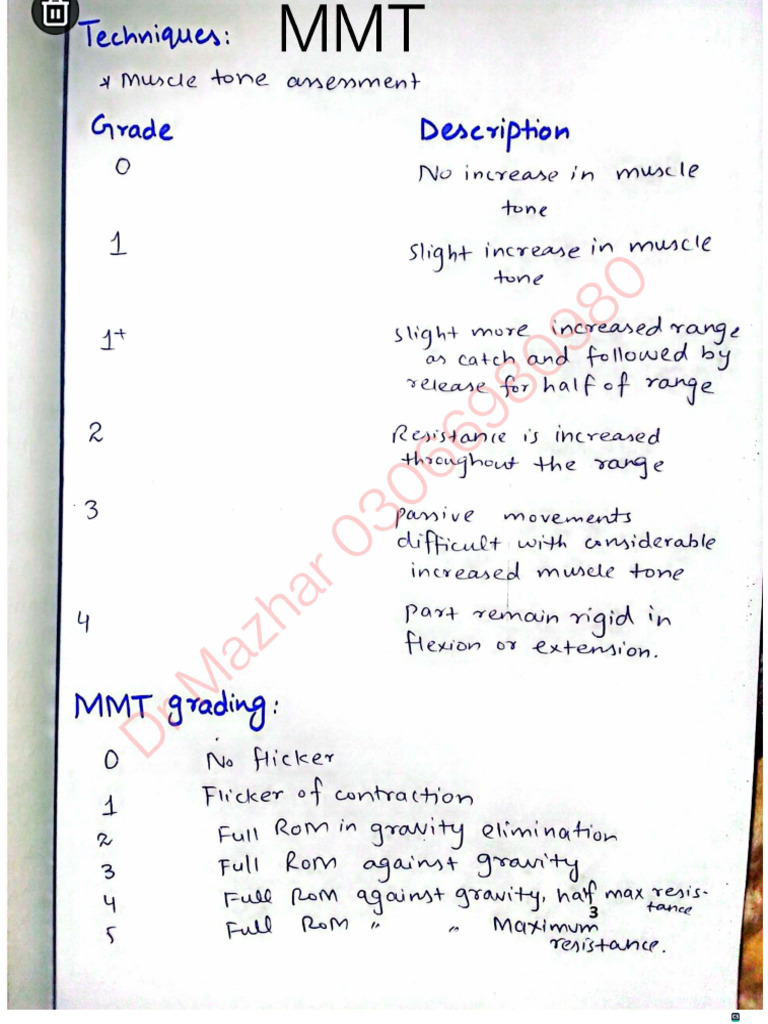 Techniques: MMT
* Muscle tone assessment
Grade Description
0 No increase in muscle
tone
1 Slight increase in muscle
tone
1+ Slight more increased range
as catch and followed by
release for half of range
2 Resistance is increased
throughout the range
3 passive movements
difficult with considerable
increased muscle tone
4 Part remain rigid in
flexion or extension.
Dr Mazhar 03066980980
MMT grading:
0 No flicker
1 Flicker of contraction
2 Full ROM in gravity elimination
3 Full ROM against gravity
4 Full ROM against gravity, half max resis-
tance
3
5 Full ROM " " Maximum
resistance.
CS